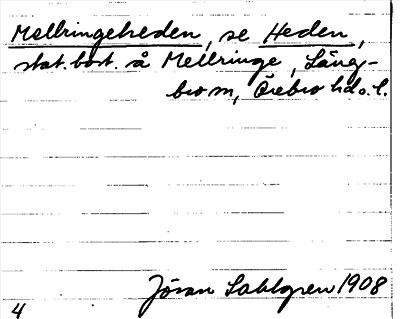 Mellringeheden, se Heden,
stat.bost. å Mellringe, Läng-
bro sn, Örebro hd o. l.
Jöran Sahlgren 1908
4